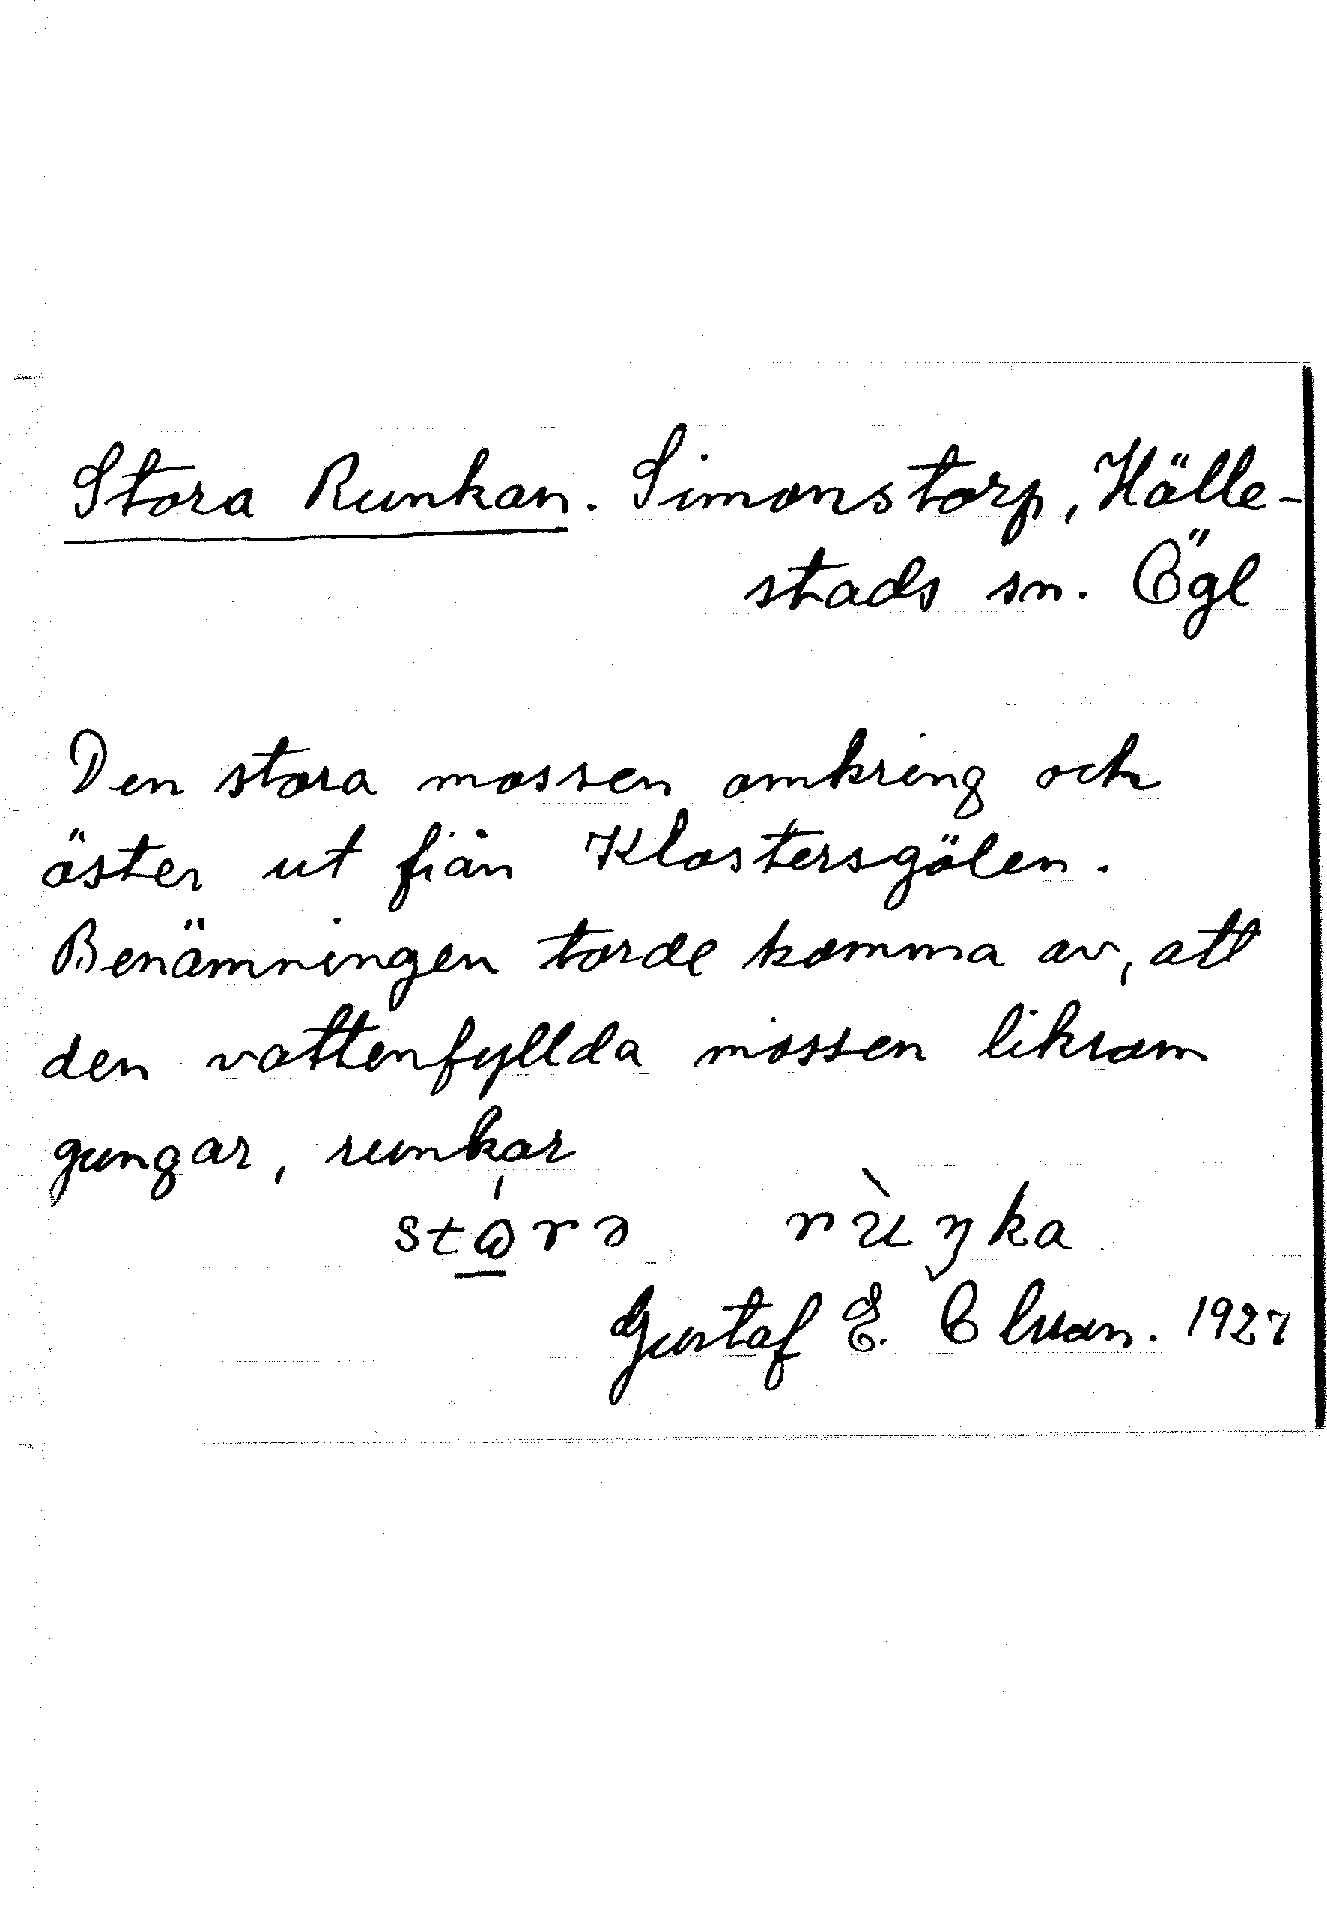 Stora Runkan. Simonstorp, Hälle-
stads sn. Ögl
Den stora mossen omkring och
öster ut från Klostersgölen.
Benämningen torde komma av, att
den vattenfyllda mossen liksom
gungar, runkar
rùŋka
Gustaf E. 1927